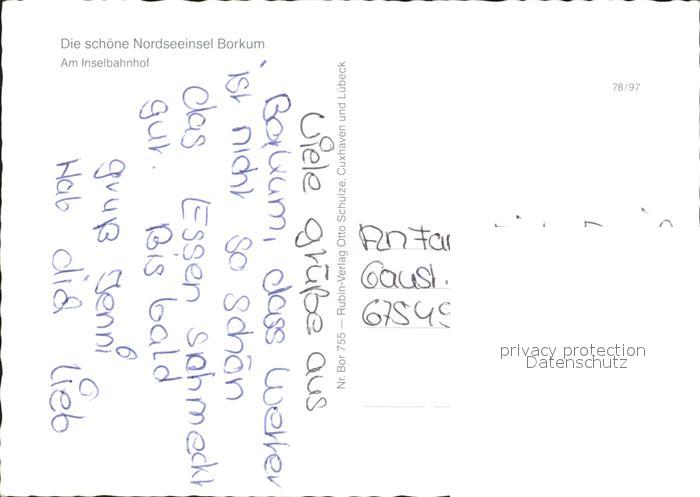 Die schöne Nordseeinsel Borkum
Am Inselbahnhof
78/97
Nr. Bor 755 — Rubin-Verlag Otto Schulze, Cuxhaven und Lübeck
Viele grüße aus
Borkum, dass wetter
ist nicht so schön
das Essen schmeckt
gut. Bis bald
gruß Jenni
Hab dich lieb
An Fam
Gaust.
67549
privacy protection
Datenschutz